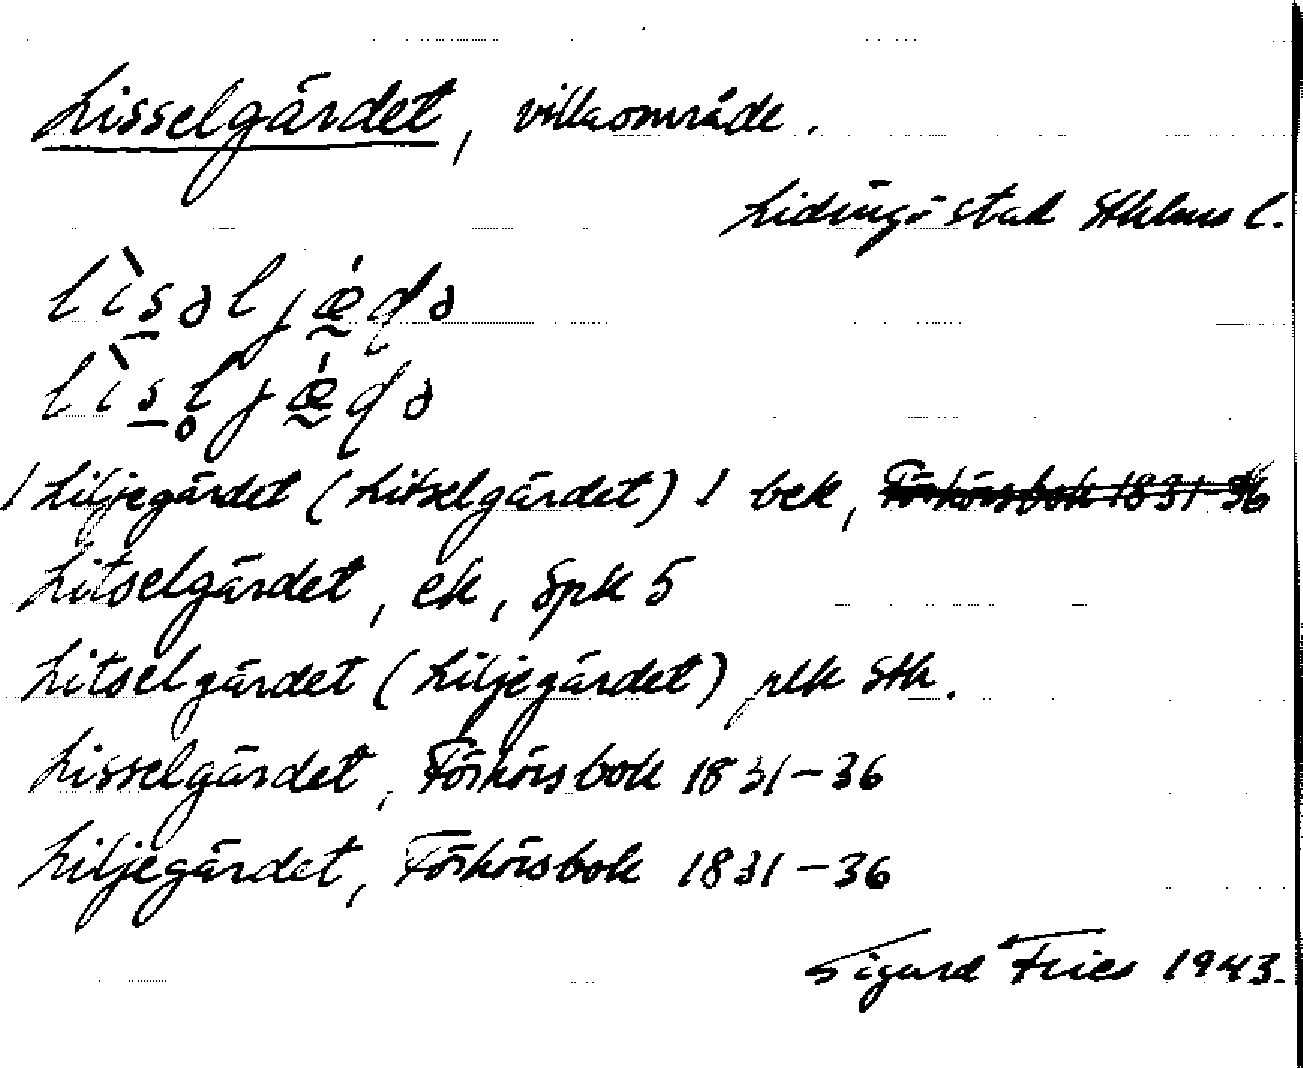 Lisselgärdet, villaområde.
Lidingö stad Sthlms l.
lìs̲əljǽ̰ɖə
lìs̲l̥jǽ̰ɖə
/Liljegärdet (Litselgärdet)/ bek, Förhörsbok 1831-36
Litselgärdet, ek, Spk 5
Litselgärdet (Liljegärdet) plk Sth.
Lisselgärdet, Förhörsbok 1831-36
Liljegärdet, Förhörsbok 1831-36
Sigurd Fries 1943.